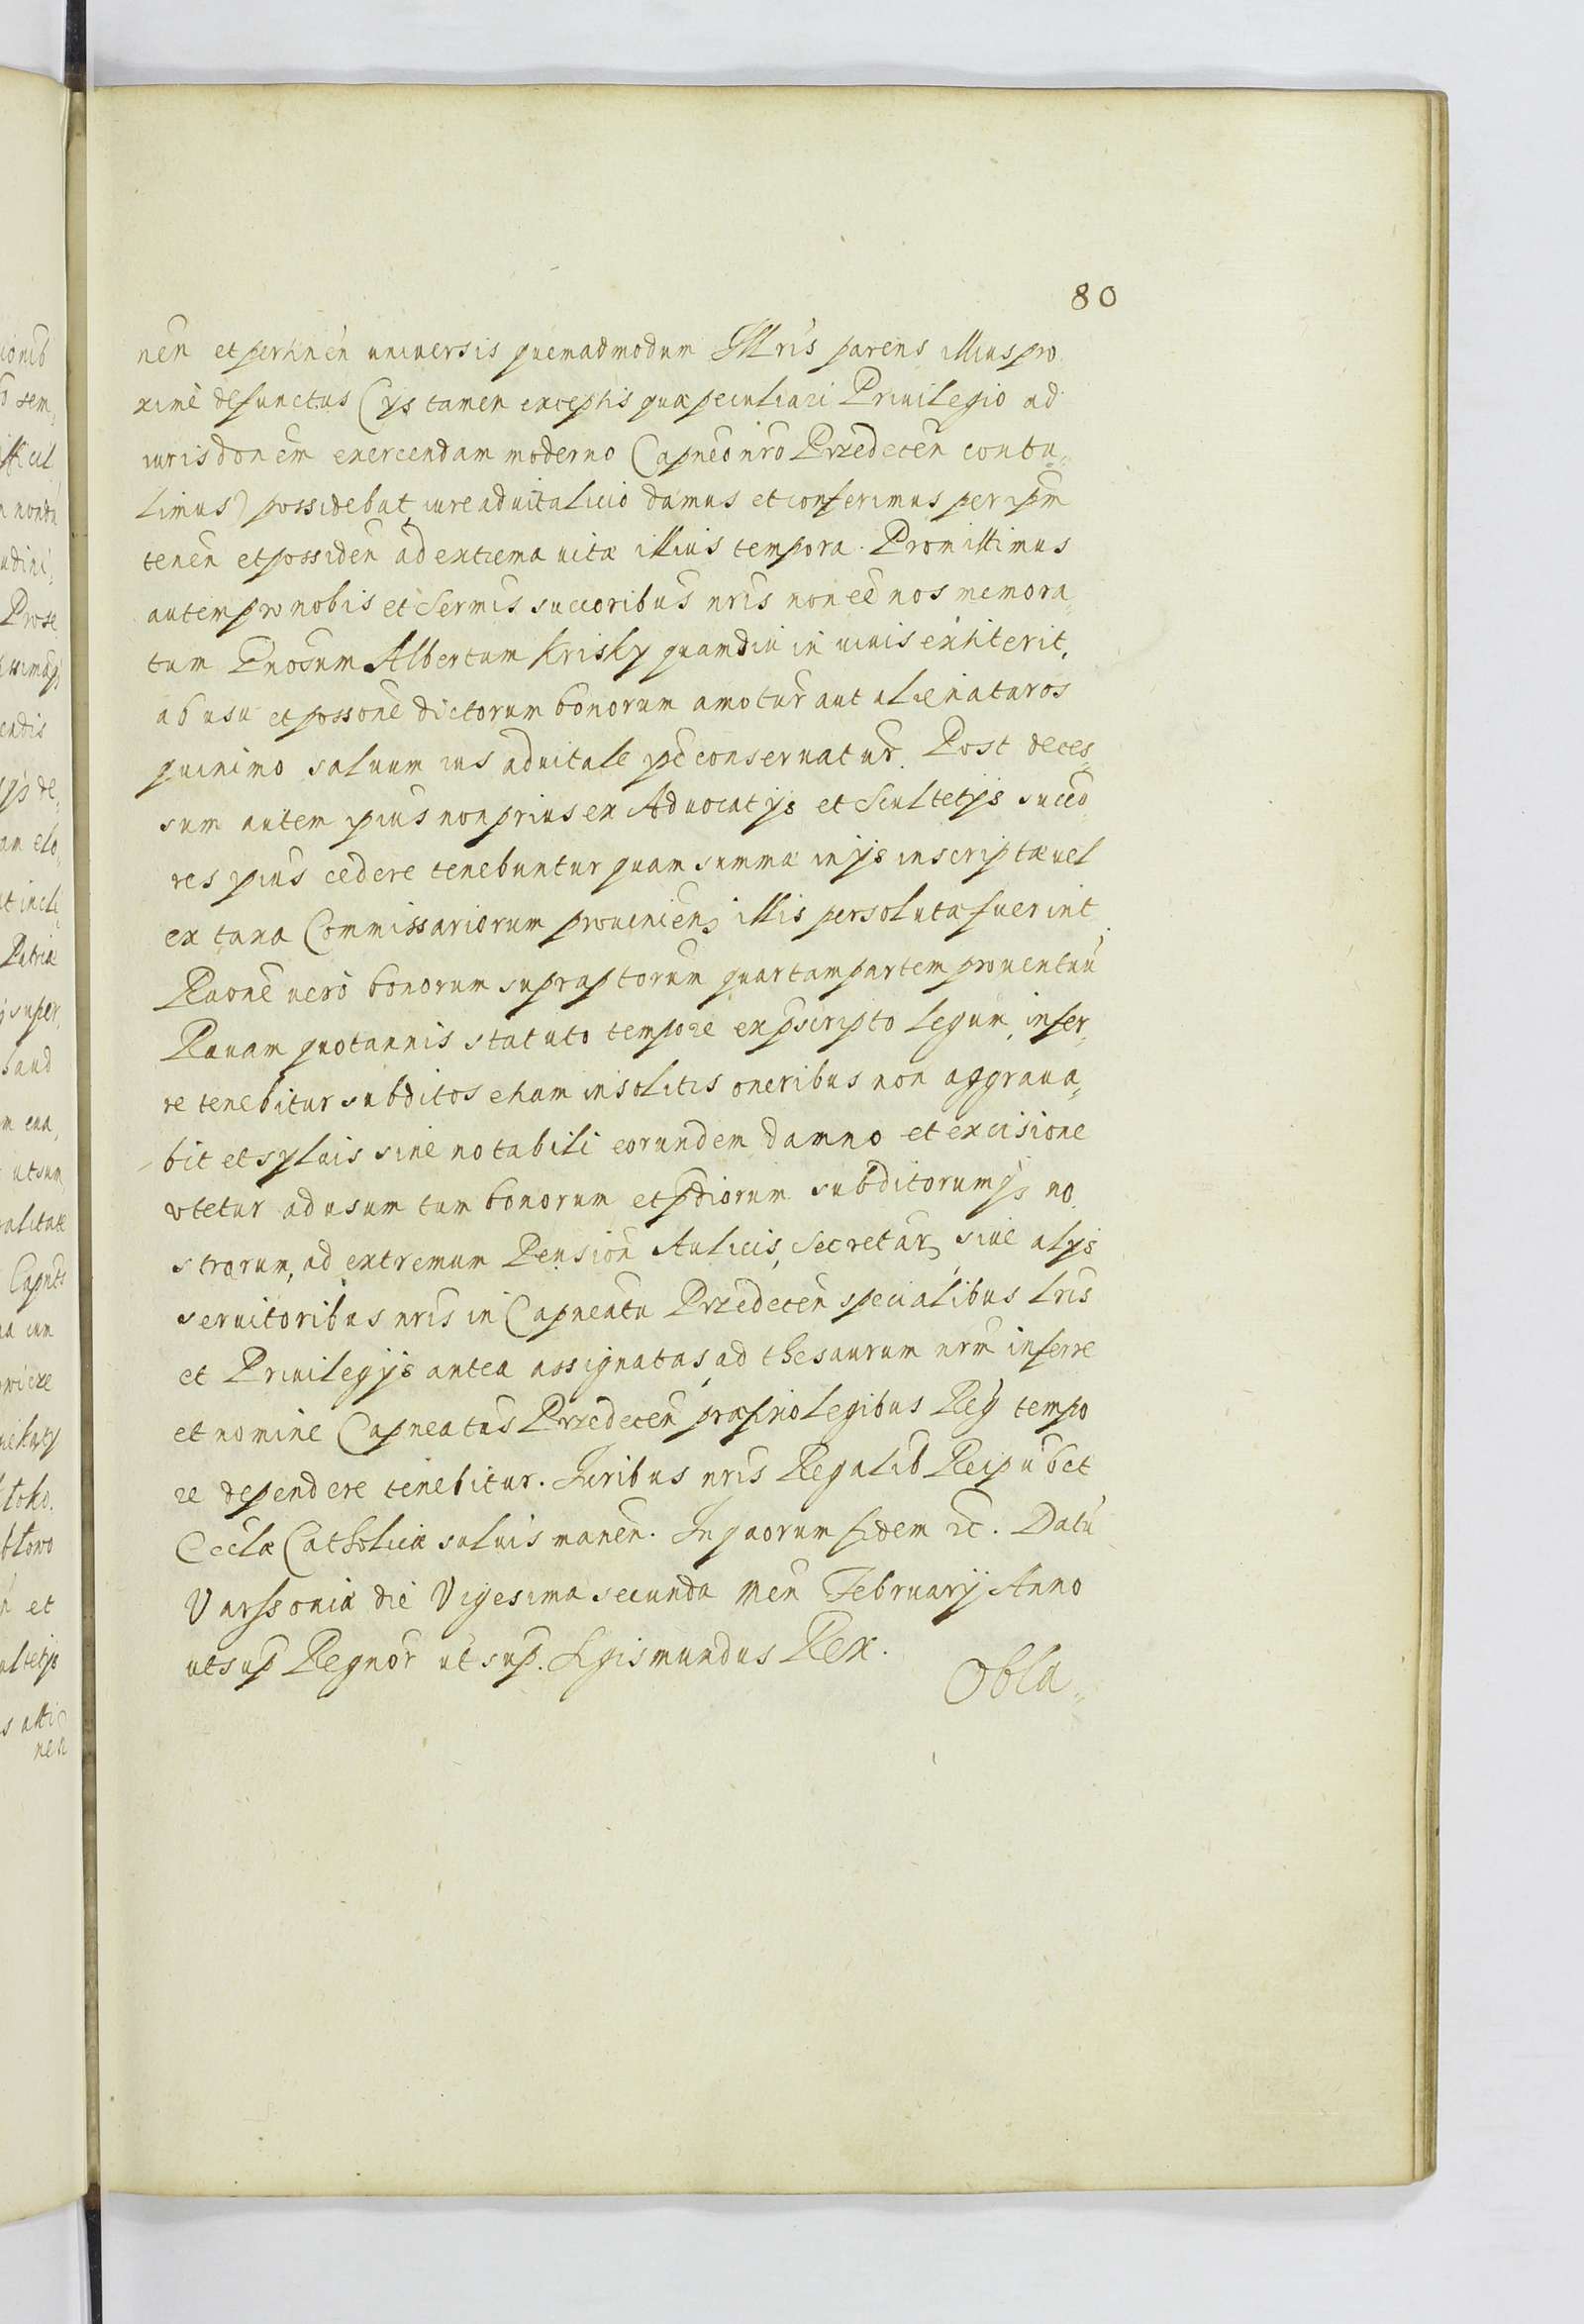 80
nen et pertinen uniuersis quemadmodum Illris parens illius pro
ximè defunctus (ijs tamen exceptis quæ peculiari Priuilegio ad
iurisdonem exercendam moderno Capneo nro Przedecen contu„
limus) possidebat, iure aduitalicio damus et conferimus per ipm
tenen et possiden ad extrema uitæ illius tempora. Promittimus
autem pro nobis et Sermis succoribus nris non eē nos memora„
tum Gnosum Albertum Krisky quamdiu in uiuis extiterit,
ab usu et possone dictorum bonorum amotur aut alienaturos
quinimo saluum ius aduitale ipē conseruatur. Post deces„
sum autem ipius non prius ex Aduocatijs et Scultetijs succo
res ipius cedere tenebuntur quam summæ in ijs inscriptæ uel
ex taxa Commissariorum prouenien, illis persolutæ fuerint.
Raone uero bonorum supraptorum quartam partem prouentuū
Rauam quotannis statuto tempore ex pscripto legum, infer„
re tenebitur subditos etiam insolitis oneribus non aggraua„
bit et syluis sine notabili eorundem damno et excisione
vtetur ad usum tum bonorum et pdiorum subditorumqs no
strorum, ad extremum Pension Aulicis, Secretar, siue alijs
seruitoribus nris in Capneatu Przedecen specialibus lris
et Priuilegijs antea assignatas, ad thesaurum nrm inferre
et nomine Capneatus Przedecen præfixo legibus Regi tempo
re dependere tenebitur. Iuribus nris Regalib Reipub et
Ecclæ Catholicæ saluis manen. In quorum fidem etc. Datū
Varssoniæ die Vigesima secunda Men Februarij Anno
ut sup Regnor ut sup. Sgismundus Rex.
Obla„